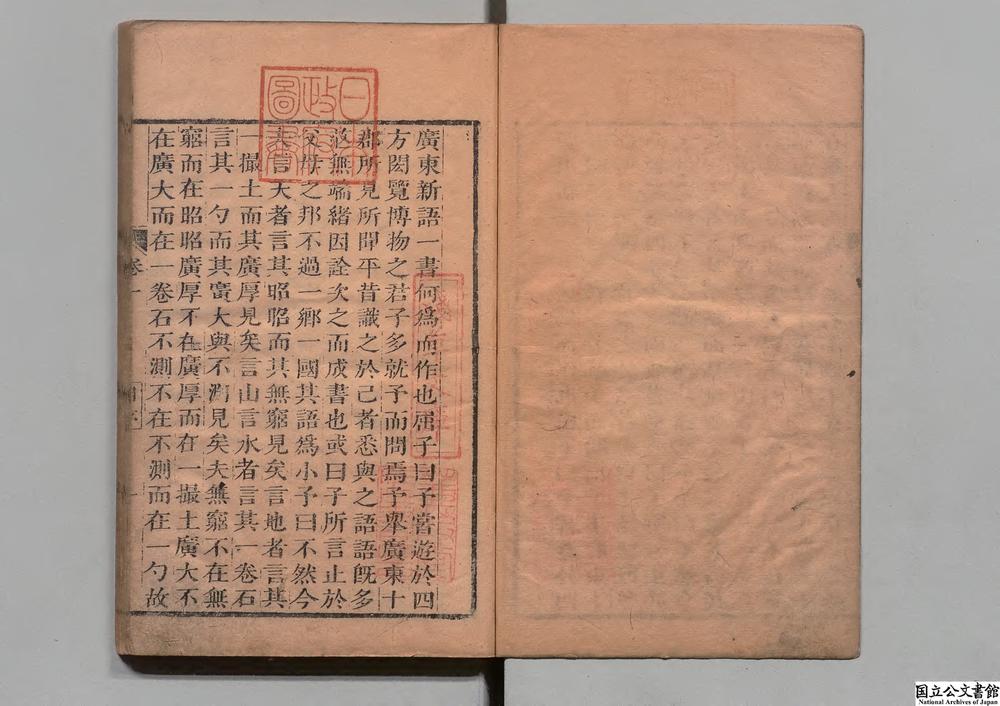 廣東新語一書何爲而作也屈子曰予嘗遊於四
方閎覽博物之君子多就予而問焉予舉廣東十
郡所見所聞平昔識之於己者悉與之語語旣多
茫無端緒因詮次之而成書也或曰子所言止於
父母之邦不過一鄉一國其語爲小予曰不然今
夫言天者言其昭昭而其無窮見矣言地者言其
一撮土而其廣厚見矣言山言水者言其一卷石
言其一勺而其寳大與不測見矣夫無窮不在無
窮而在昭昭廣厚不在廣厚而在一撮土廣大不
在廣大而在一卷石不測不在不測而在一勺故
卷一
一
日本
政府
圖書
国立公文書館
National Archives of Japan